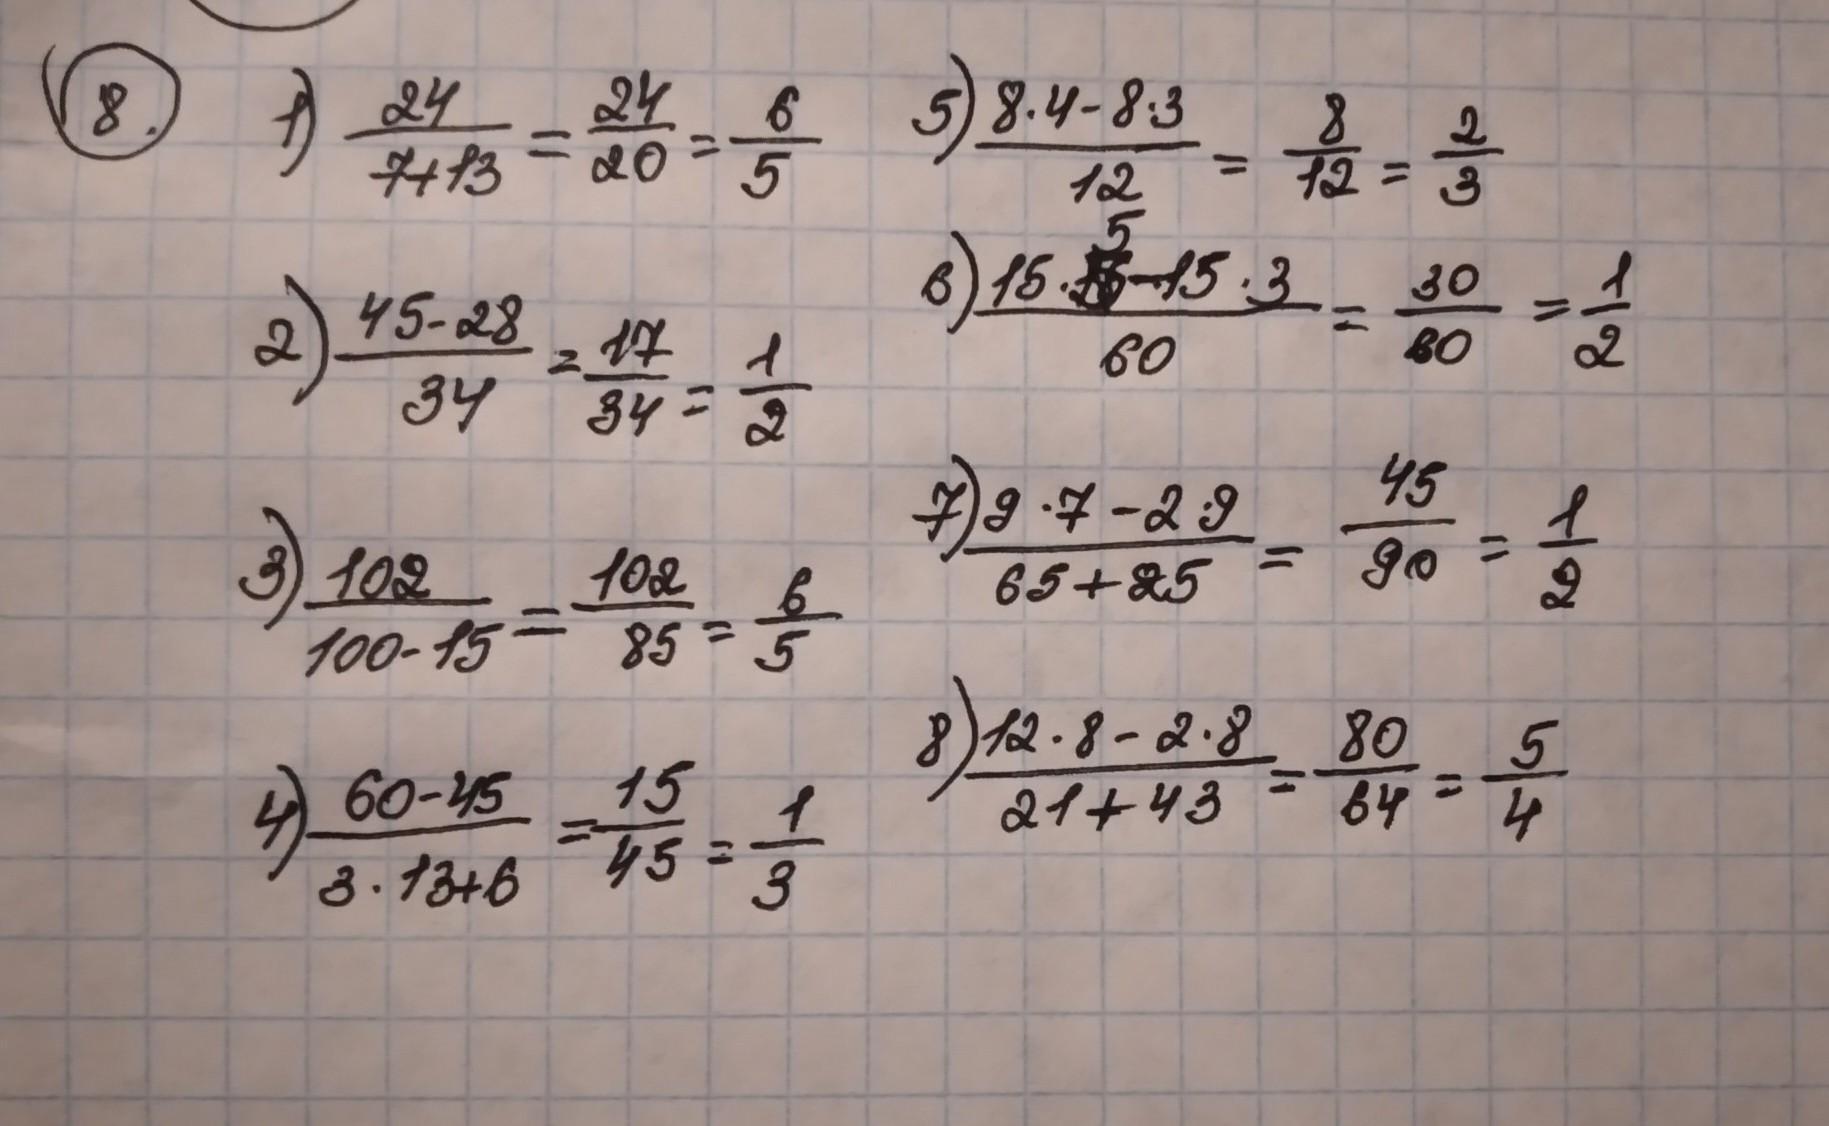 8.
1) 24/(7+13) = 24/20 = 6/5
2) (45-28)/34 = 17/34 = 1/2
3) 102/(100-15) = 102/85 = 6/5
4) (60-45)/(3·13+6) = 15/45 = 1/3
5) (8·4-8·3)/12 = 8/12 = 2/3
6) (15·5-15·3)/60 = 30/60 = 1/2
7) (9·7-2·9)/(65+25) = 45/90 = 1/2
8) (12·8-2·8)/(21+43) = 80/64 = 5/4